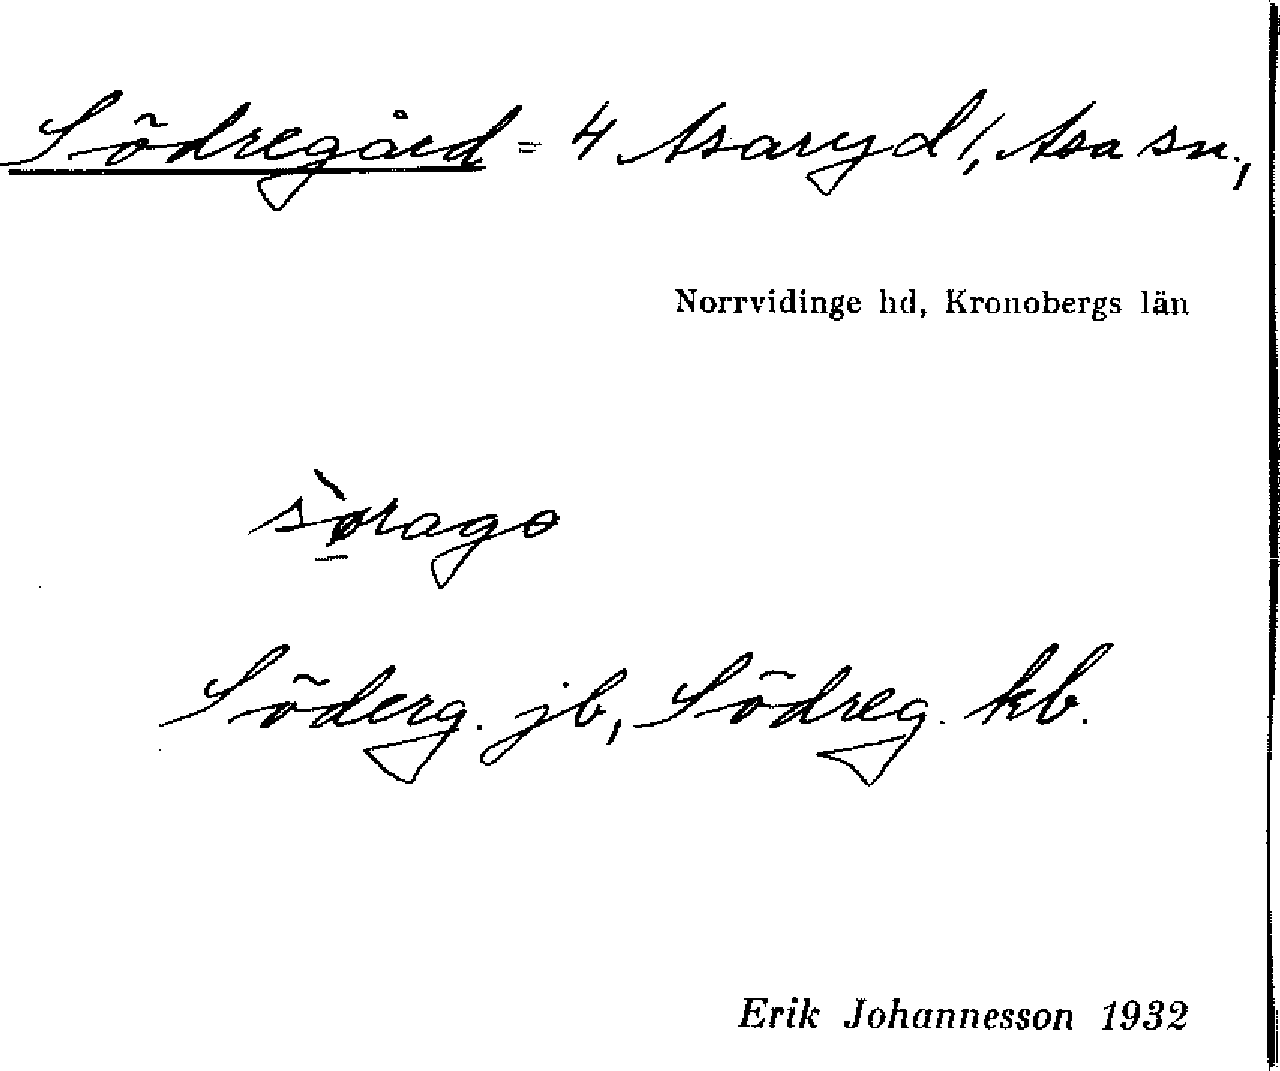 Södregård = 4 Asaryd /, Asa sn.,
Norrvidinge hd, Kronobergs län
sø̀rago
Söderg. jb, Södreg. kb.
Erik Johannesson 1932